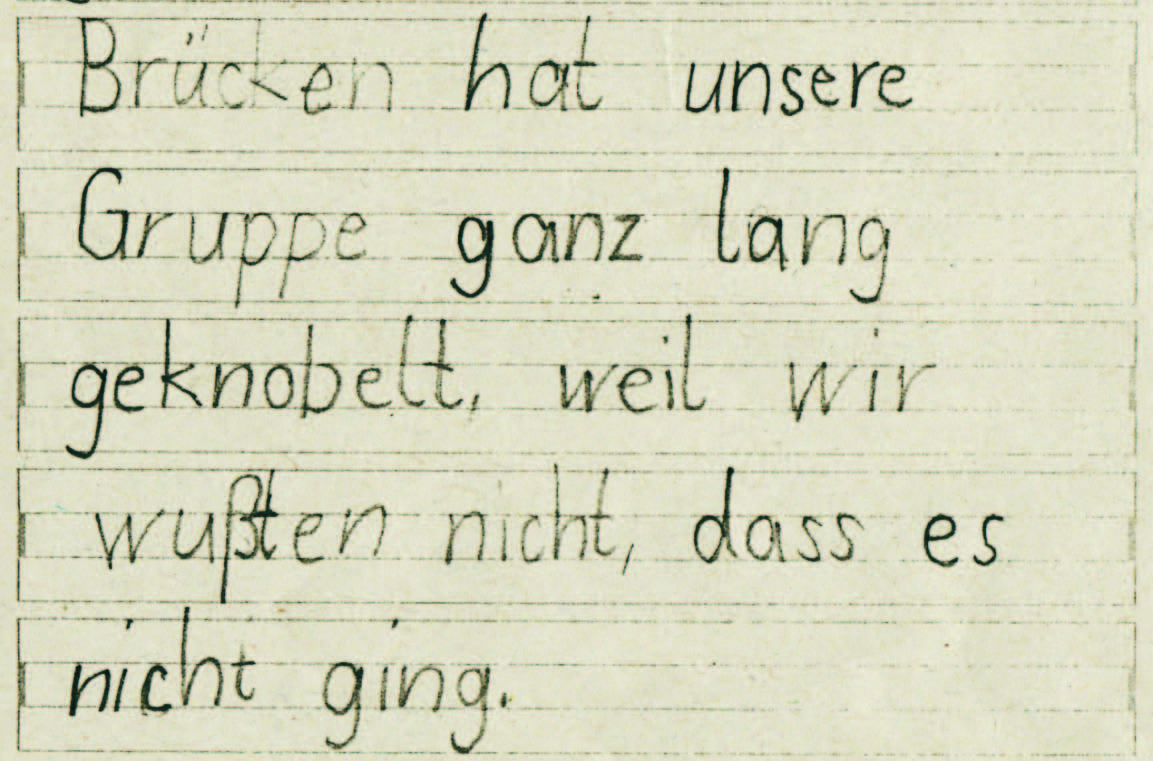 Brücken hat unsere
Gruppe ganz lang
geknobelt, weil wir
wußten nicht, dass es
nicht ging.